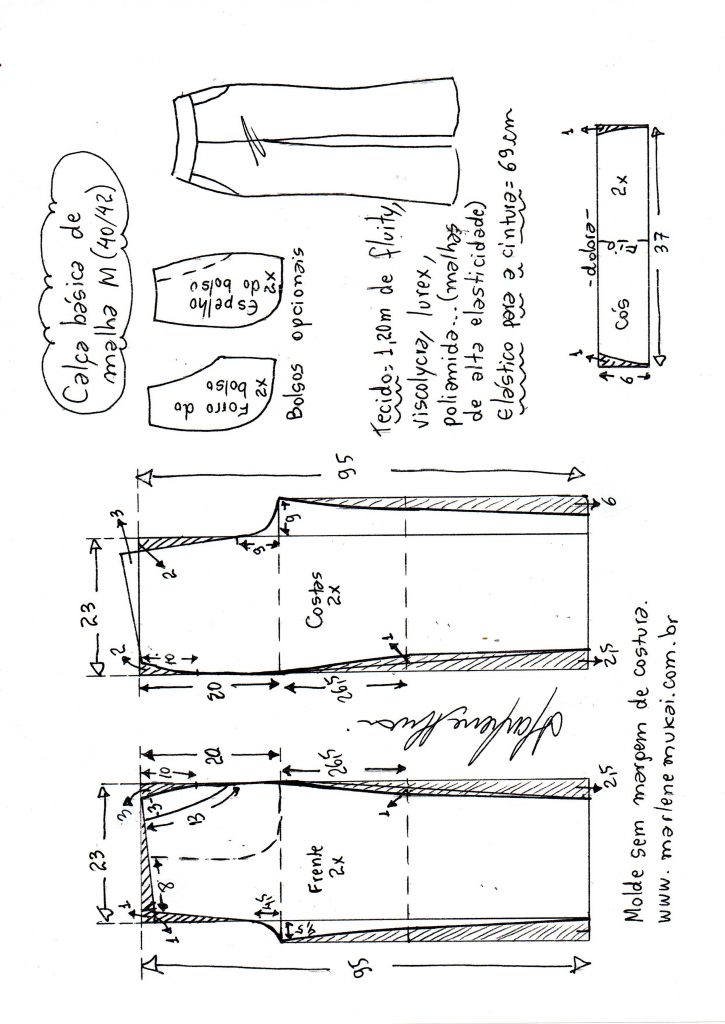 Calça básica de
malha M (40/42)
Forro do
bolso
2x
Espelho
do bolso
2x
Bolsos opcionais
Tecido= 1,20m de fluity,
viscolycra, lurex,
poliamida... (malhas
de alta elasticidade)
Elástico para a cintura= 69cm
1
1
-dobra-
Cós
2x
4
6
37
95
23
3
2
2
10
20
26,5
9
9
Costas
2x
1
6
2,5
23
3
3
10
20
26,5
13
8
1
1
4,5
4,5
Frente
2x
1
2,5
95
Molde sem margem de costura.
www.marlenemukai.com.br